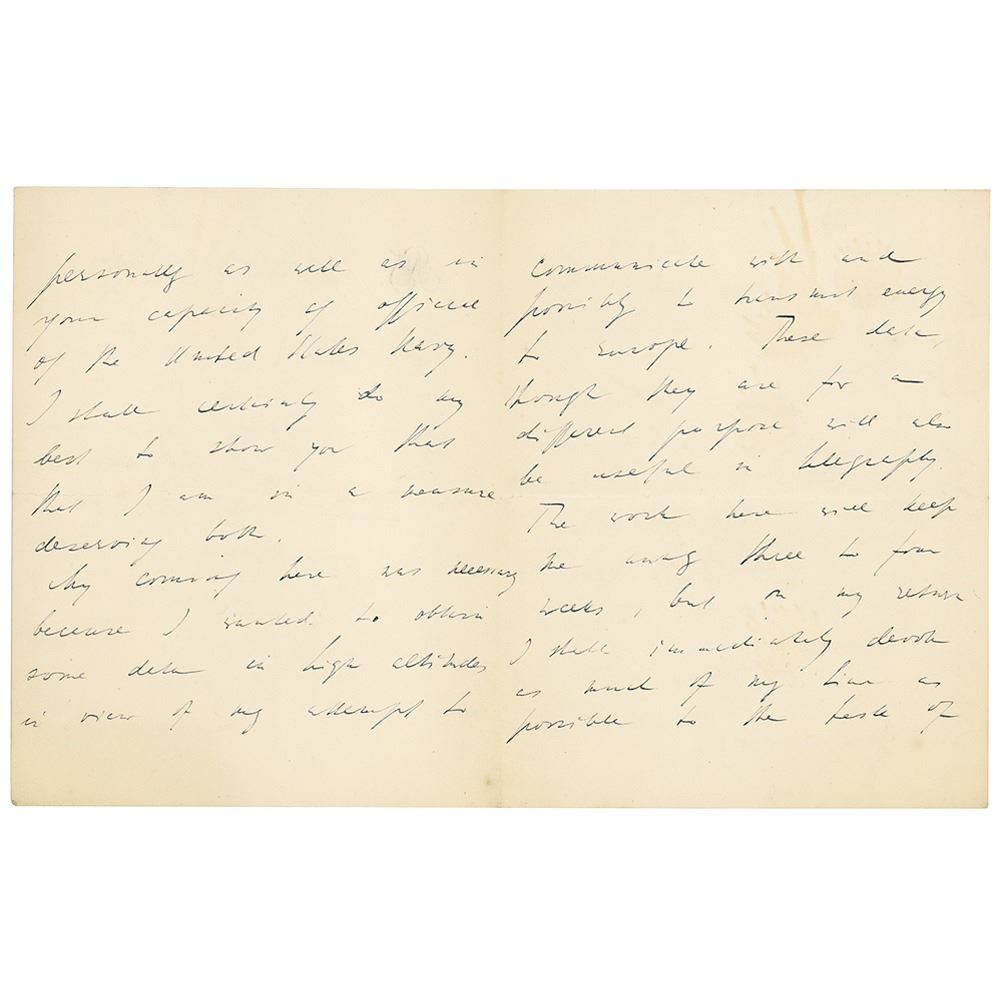 personally as well as in
your capacity of officer
of the United States Navy.
I shall certainly do my
best to show you that
that I am in a measure
deserving both.
My coming here was necessary
because I wanted to obtain
some data in high altitudes
in view of my attempt to
communicate with and
possibly to transmit energy
to Europe. These data,
though they are for a
different purpose will also
be useful in telegraphy.
The work here will keep
me three to four
weeks, but on my return
I shall immediately devote
as much of my time as
possible to the task of